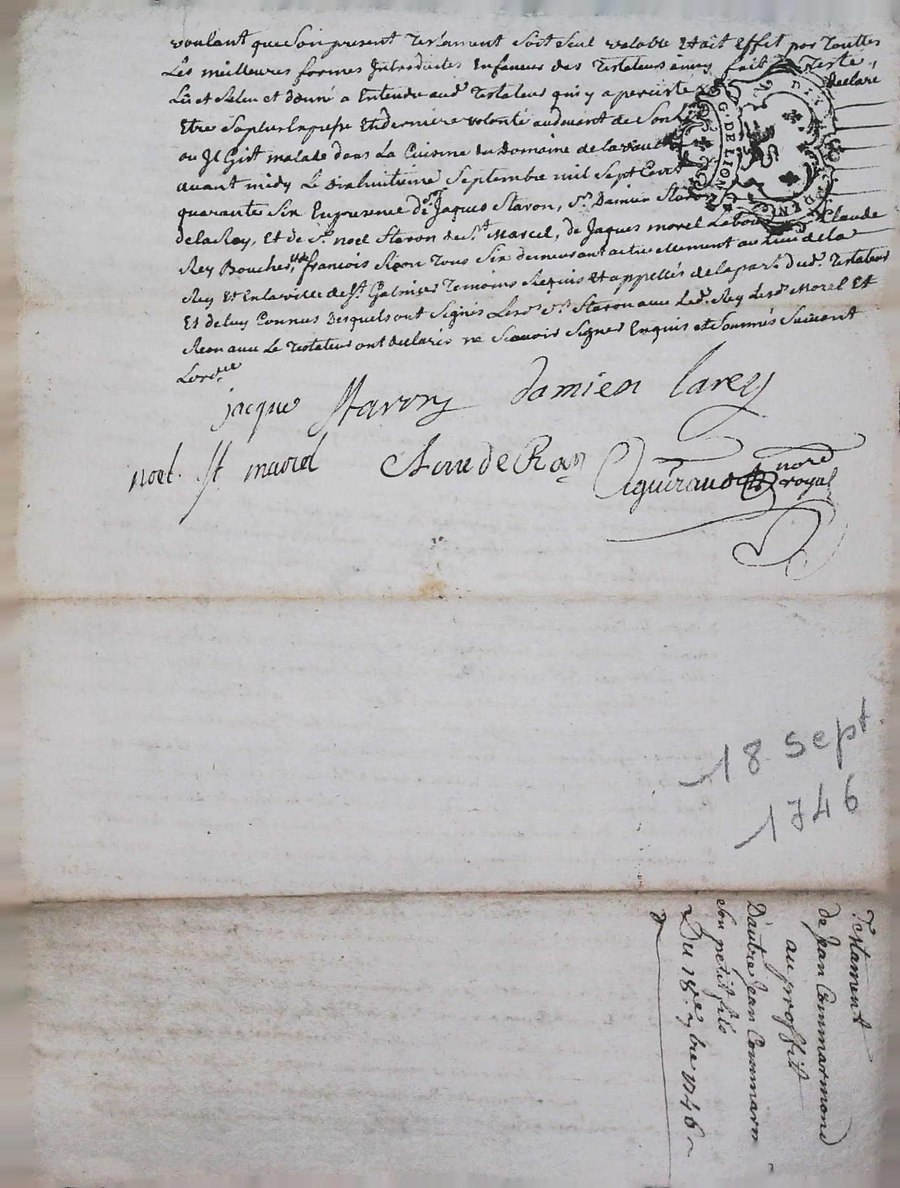 voulant que Son present Testament Soit Seul valable Et ait Effet par Touttes
Les meilleures formes Introduites Enfaveur des Testateurs ainsy fait Et Testé,
Lû et Relu et donné a Entendre aud. Testateur qui y a percisté Declaré
Etre Saplus Expresse Et derniere volonté audevant de Son Lit
ou Il Git malade dans La Cuisine du Domaine de la
avant midy Le dixhuitieme Septembre mil Sept Cent
quarante Six En presence de Jaques Staron, Sr. Damien Staron
de la Rey, Et de Sr. noel Staron de St. Marcel, de Jaques morel Claude
Rey Boucher, Et de francois Reon Tous Six demeurant actuellement au Lieu de la
Rey Et En la ville de St. Galmier Temoins Requis Et appellés de la part dud. Testateur
Et de luy Connus Desquels ont Signés Lesd. Srs. Staron avec Led. Rey Lesd. Morel Et
Reon avec Le Testateur ont declarés ne Scavoir Signer Enquis et Sommés Suivant
Lordce
G. DE LION
jacque Staron damien larey
noel St marcel Claude Ray Aguiraud nore royal
18 sept
1746
Testament
de Jean Commarmond
au proffit
D'autre Jean Commarm
Son petit fils
Du 18e 7bre 1746